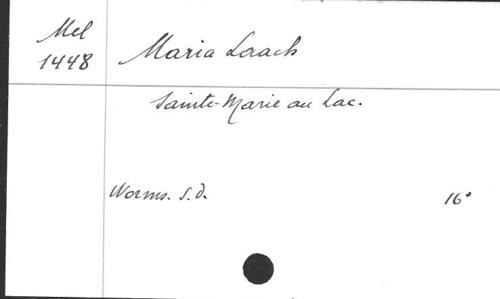 Mel
1448
Maria Laach
Sainte-Marie au Lac.
Worms. s.d.
16°